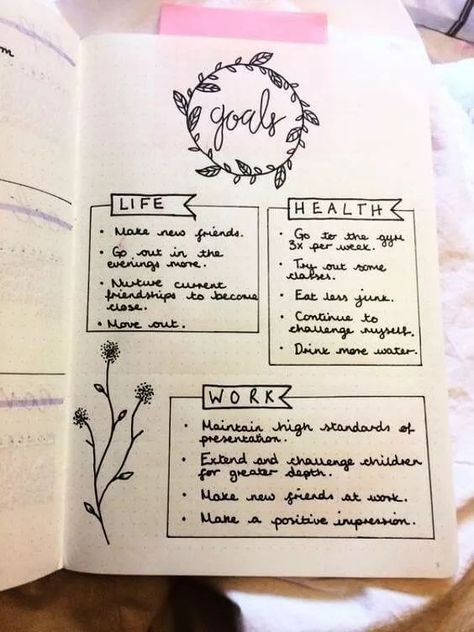 goals
LIFE
• Make new friends.
• Go out in the
evenings more.
• Nurture current
friendships to become
close.
• Move out.
HEALTH
• Go to the gym
3x per week.
• Try out some
classes.
• Eat less junk.
• Continue to
challenge myself.
• Drink more water.
WORK
• Maintain high standards of
presentation.
• Extend and challenge children
for greater depth.
• Make new friends at work.
• Make a positive impression.